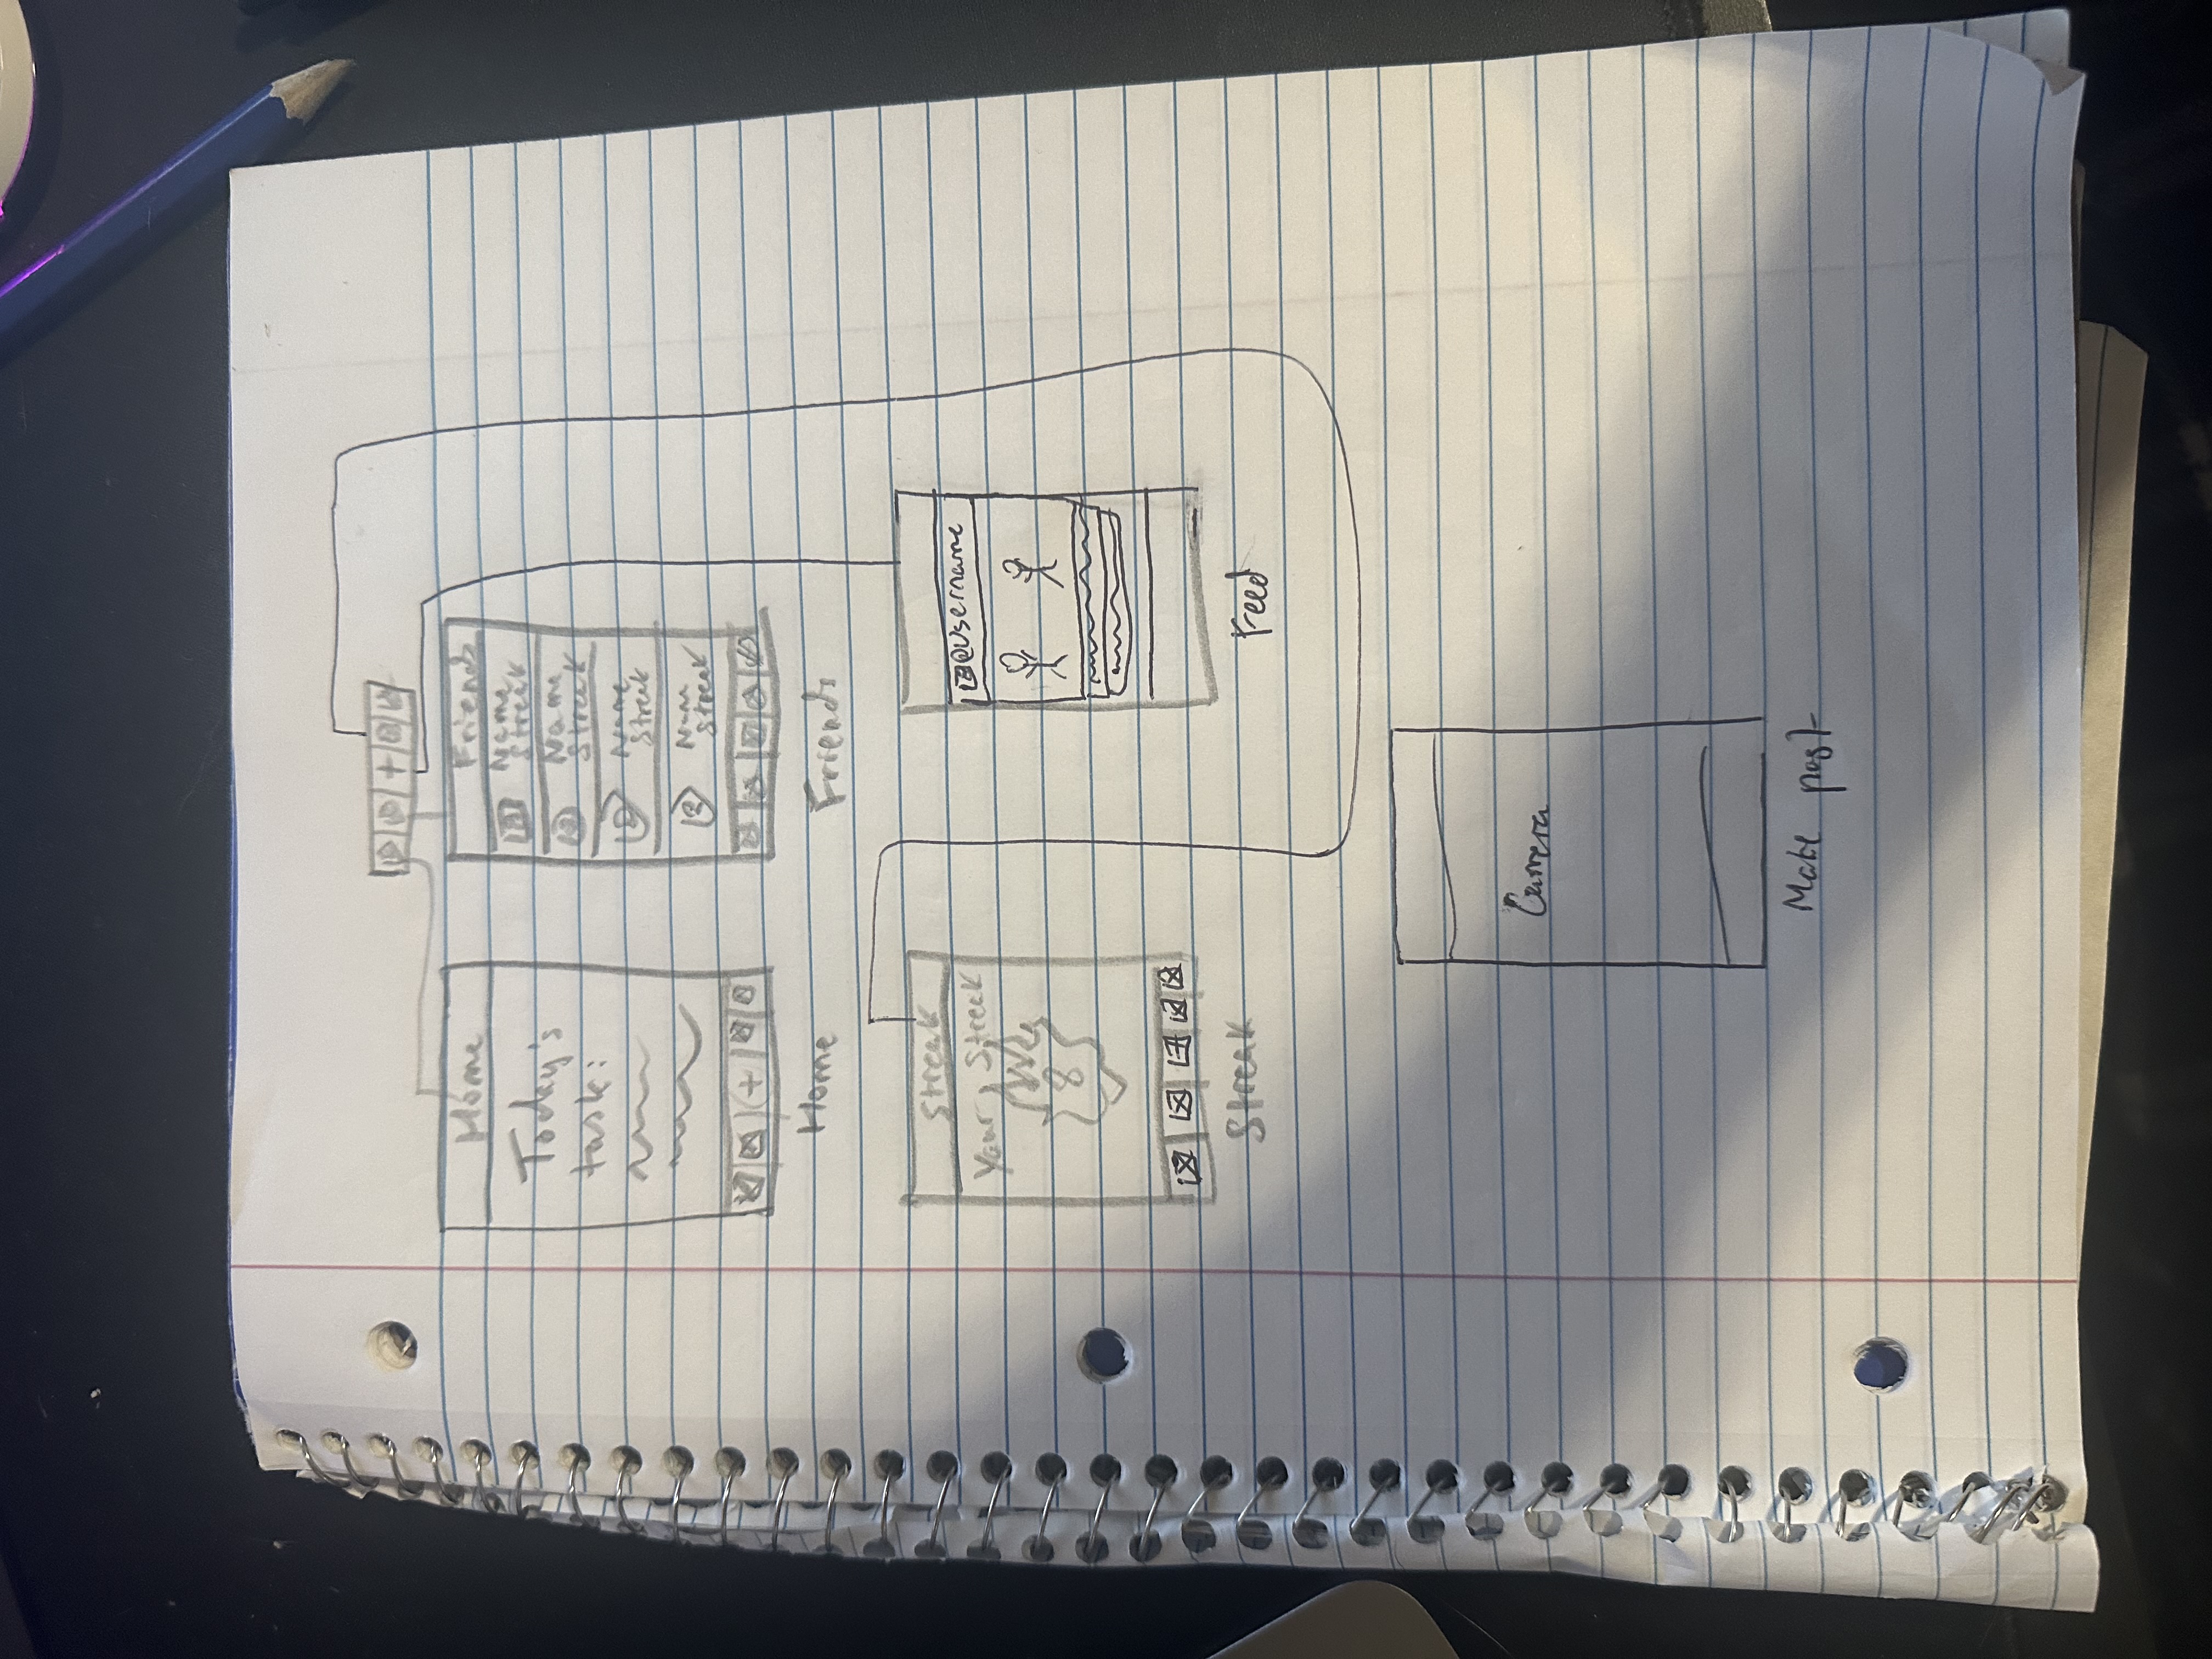 +
Home
Today's
task:
+
Home
Friends
Name
Streak
Name
Streak
Name
Streak
Nam
Streak
Friends
Streak
Your Streak
8
Streak
@username
Feed
Camera
Make post